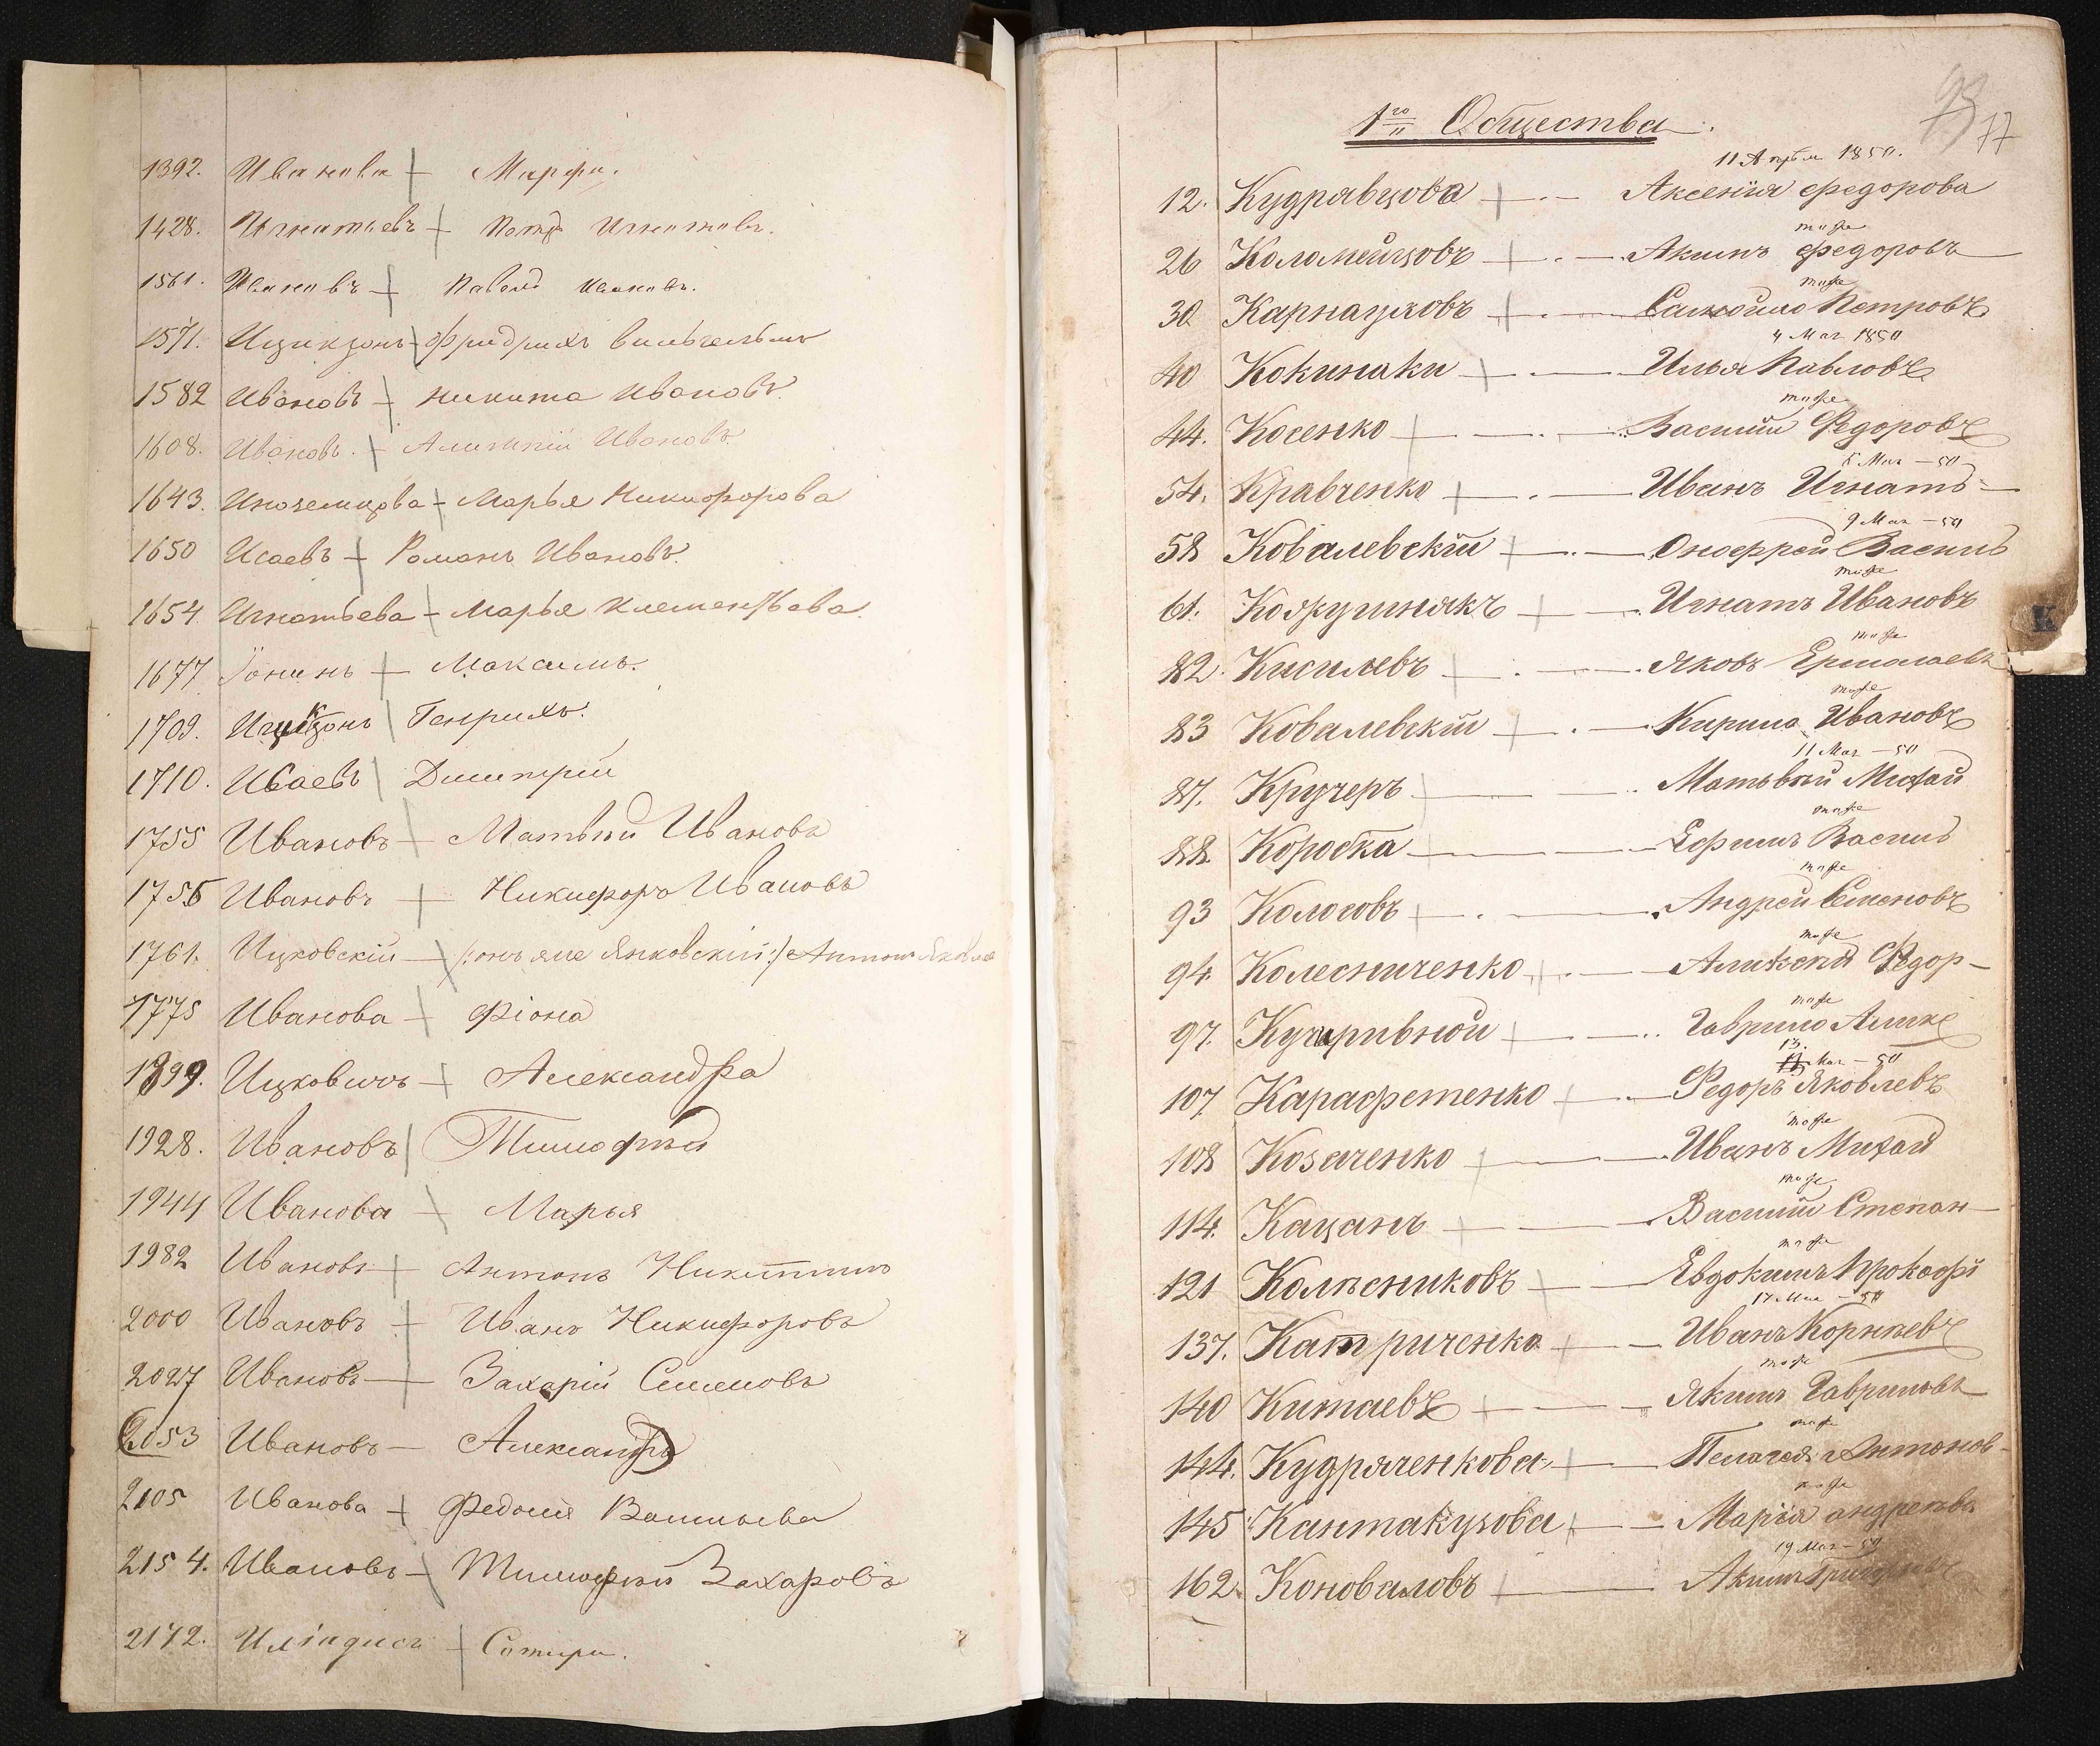 1392. Иванова Марфа.
1428. Игнатьевъ Петръ Игнатьевъ.
1561. Ивановъ Павелъ Ивановъ.
1571. Ицикзонъ Фридрихъ Вильгельмъ
1582 Ивановъ Никита Ивановъ.
1608. Ивановъ. Алексѣй Ивановъ.
1643. Иноземцова Марья Никифорова
1650 Исаевъ Романъ Ивановъ.
1654. Игнатьева Марья Клементьева
1677 Іонинъ Максимъ.
1709. Ицикзонъ Генрихъ.
1710. Исаевъ Димитрій
1755 Ивановъ Матвѣй Ивановъ
1756 Ивановъ Никифоръ Ивановъ
1761. Ицковскій /:онъ же Янковскій:/ Антонъ
1775 Иванова Фіона
1899. Ицковичъ Александра
1928. Ивановъ Тимофѣй
1944 Иванова Марья
1982 Ивановъ Антонъ Никитинъ
2000 Ивановъ Иванъ Никифоровъ
2027 Ивановъ Захарій Семеновъ
2053 Ивановъ Александръ
2105 Иванова Федосія Васильева
2154. Ивановъ Тимофѣй Захаровъ
2172. Иліадисъ Сотири.
93 77
1го Общества.
11 Апрѣл 1850.
12. Кудрявцова Аксенія Федорова
тоже
26 Коломейцовъ Акимъ Федоровъ
тоже
30 Карнауховъ Самойло Петровъ
4 Мая 1850
40 Кокинаки Илья Павловъ
тоже
44. Косенко Василій Федоровъ
5 Мая - 50
54. Кравченко Иванъ Игнатъ
9 Мая - 50
58 Ковалевскій Оноффрей Василь
тоже
61. Кожушнякъ Игнатъ Ивановъ
тоже
82. Кисилевъ Яковъ Ермолаевъ
тоже
83 Ковалевскій Кирило Ивановъ
11 Мая - 50
87. Кручеръ Матвѣй Михай
тоже
88. Коробка Ефимъ Василь
тоже
93 Колосовъ Андрей Семеновъ
тоже
94. Колесниченко Алексѣй Федор-
тоже
97. Кучеривной Гаврило Алекс
13. Мая - 50
107 Карафетенко Федоръ Яковлевъ
тоже
108 Козаченко Иванъ Михай
тоже
114. Кацанъ Василій Степан-
тоже
121 Колѣсниковъ Евдокимъ Прокофі
17 Мая - 50
137. Катриченко Иванъ Корнѣевъ
тоже
140 Китаевъ Якимъ Гавриловъ
тоже
144. Кудряченкова Пелагея Антонов-
тоже
145 Кантакузова Марія Андреева
19 Мая - 50
162. Коноваловъ Акимъ
K